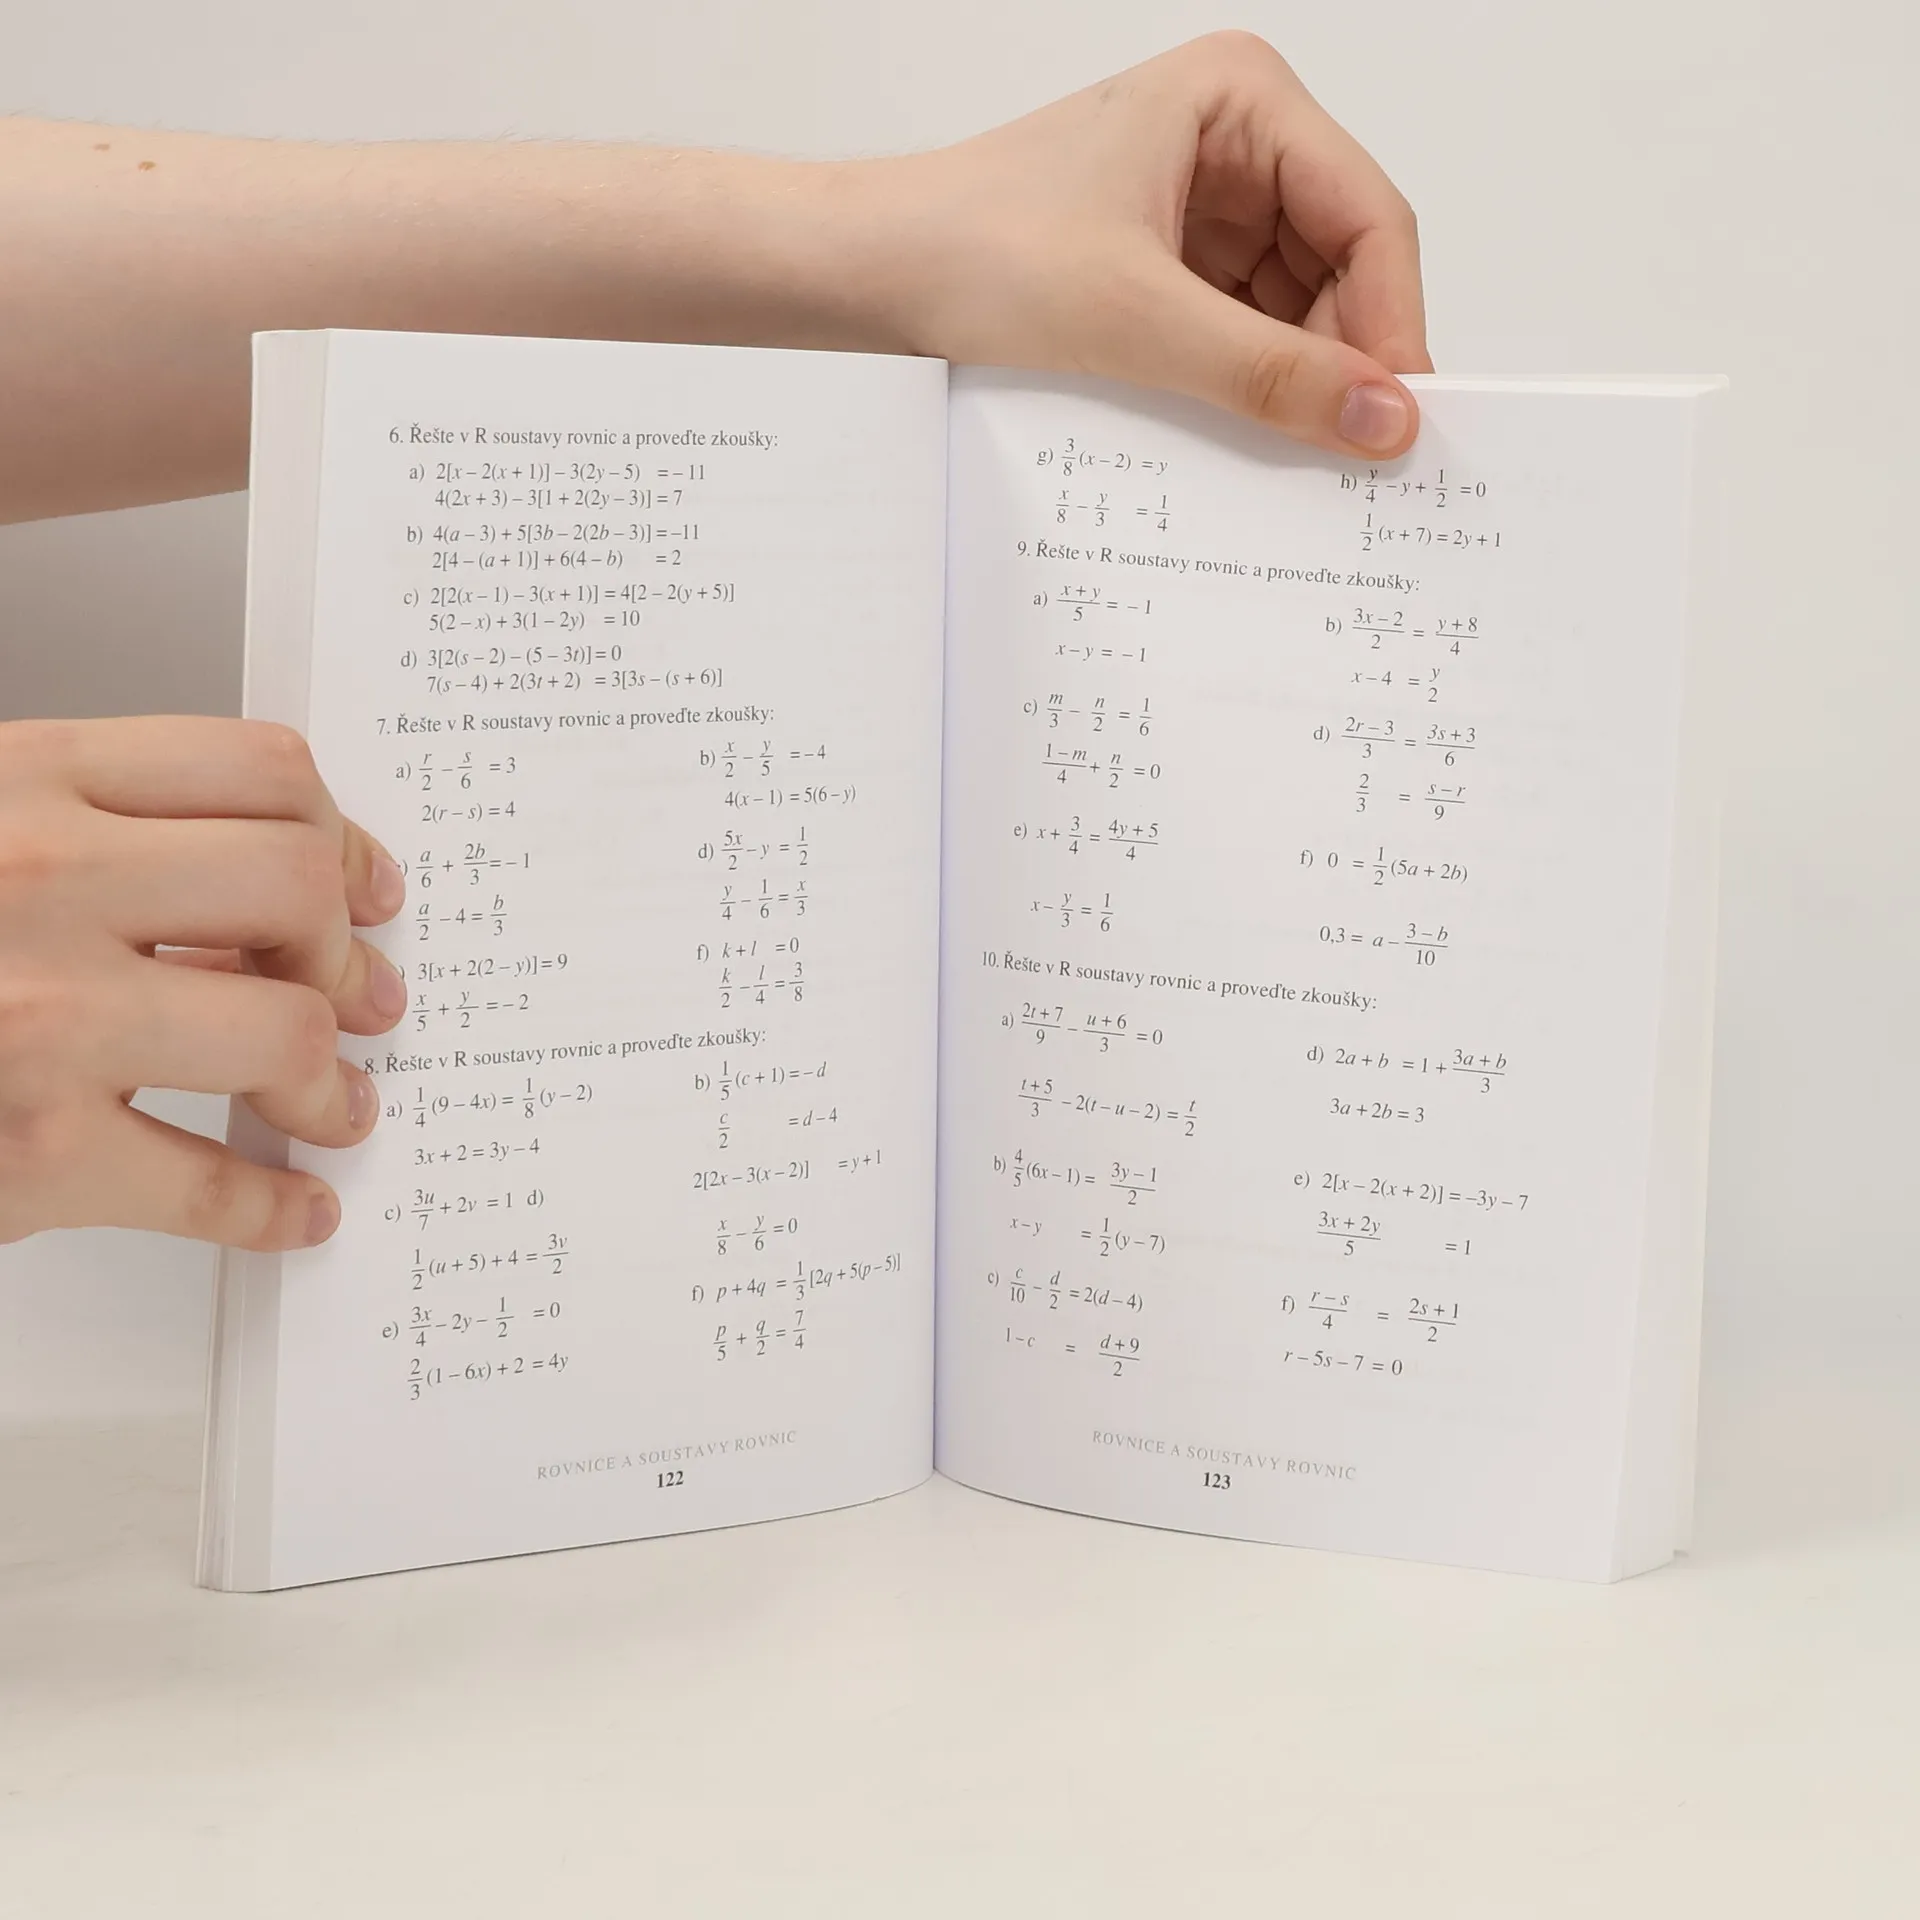 6. Řešte v R soustavy rovnic a proveďte zkoušky:
a) 2[x – 2(x + 1)] – 3(2y – 5) = – 11
4(2x + 3) – 3[1 + 2(2y – 3)] = 7
b) 4(a – 3) + 5[3b – 2(2b – 3)] = –11
2[4 – (a + 1)] + 6(4 – b) = 2
c) 2[2(x – 1) – 3(x + 1)] = 4[2 – 2(y + 5)]
5(2 – x) + 3(1 – 2y) = 10
d) 3[2(s – 2) – (5 – 3t)] = 0
7(s – 4) + 2(3t + 2) = 3[3s – (s + 6)]
7. Řešte v R soustavy rovnic a proveďte zkoušky:
a) r/2 – s/6 = 3
2(r – s) = 4
b) x/2 – y/5 = –4
4(x – 1) = 5(6 – y)
) a/6 + 2b/3 = – 1
a/2 – 4 = b/3
d) 5x/2 – y = 1/2
y/4 – 1/6 = x/3
) 3[x + 2(2 – y)] = 9
x/5 + y/2 = – 2
f) k + l = 0
k/2 – l/4 = 3/8
8. Řešte v R soustavy rovnic a proveďte zkoušky:
a) 1/4 (9 – 4x) = 1/8 (y – 2)
3x + 2 = 3y – 4
b) 1/5 (c + 1) = – d
c/2 = d – 4
c) 3u/7 + 2v = 1 d)
1/2 (u + 5) + 4 = 3v/2
2[2x – 3(x – 2)] = y + 1
x/8 – y/6 = 0
e) 3x/4 – 2y – 1/2 = 0
2/3 (1 – 6x) + 2 = 4y
f) p + 4q = 1/3 [2q + 5(p – 5)]
p/5 + q/2 = 7/4
ROVNICE A SOUSTAVY ROVNIC
122
g) 3/8 (x – 2) = y
x/8 – y/3 = 1/4
h) y/4 – y + 1/2 = 0
1/2 (x + 7) = 2y + 1
9. Řešte v R soustavy rovnic a proveďte zkoušky:
a) x + y/5 = – 1
x – y = – 1
b) 3x – 2/2 = y + 8/4
x – 4 = y/2
c) m/3 – n/2 = 1/6
1 – m/4 + n/2 = 0
d) 2r – 3/3 = 3s + 3/6
2/3 = s – r/9
e) x + 3/4 = 4y + 5/4
x – y/3 = 1/6
f) 0 = 1/2 (5a + 2b)
0,3 = a – 3 – b/10
10. Řešte v R soustavy rovnic a proveďte zkoušky:
a) 2t + 7/9 – u + 6/3 = 0
t + 5/3 – 2(t – u – 2) = t/2
d) 2a + b = 1 + 3a + b/3
3a + 2b = 3
b) 4/5 (6x – 1) = 3y – 1/2
x – y = 1/2 (y – 7)
e) 2[x – 2(x + 2)] = –3y – 7
3x + 2y/5 = 1
c) c/10 – d/2 = 2(d – 4)
1 – c = d + 9/2
f) r – s/4 = 2s + 1/2
r – 5s – 7 = 0
ROVNICE A SOUSTAVY ROVNIC
123